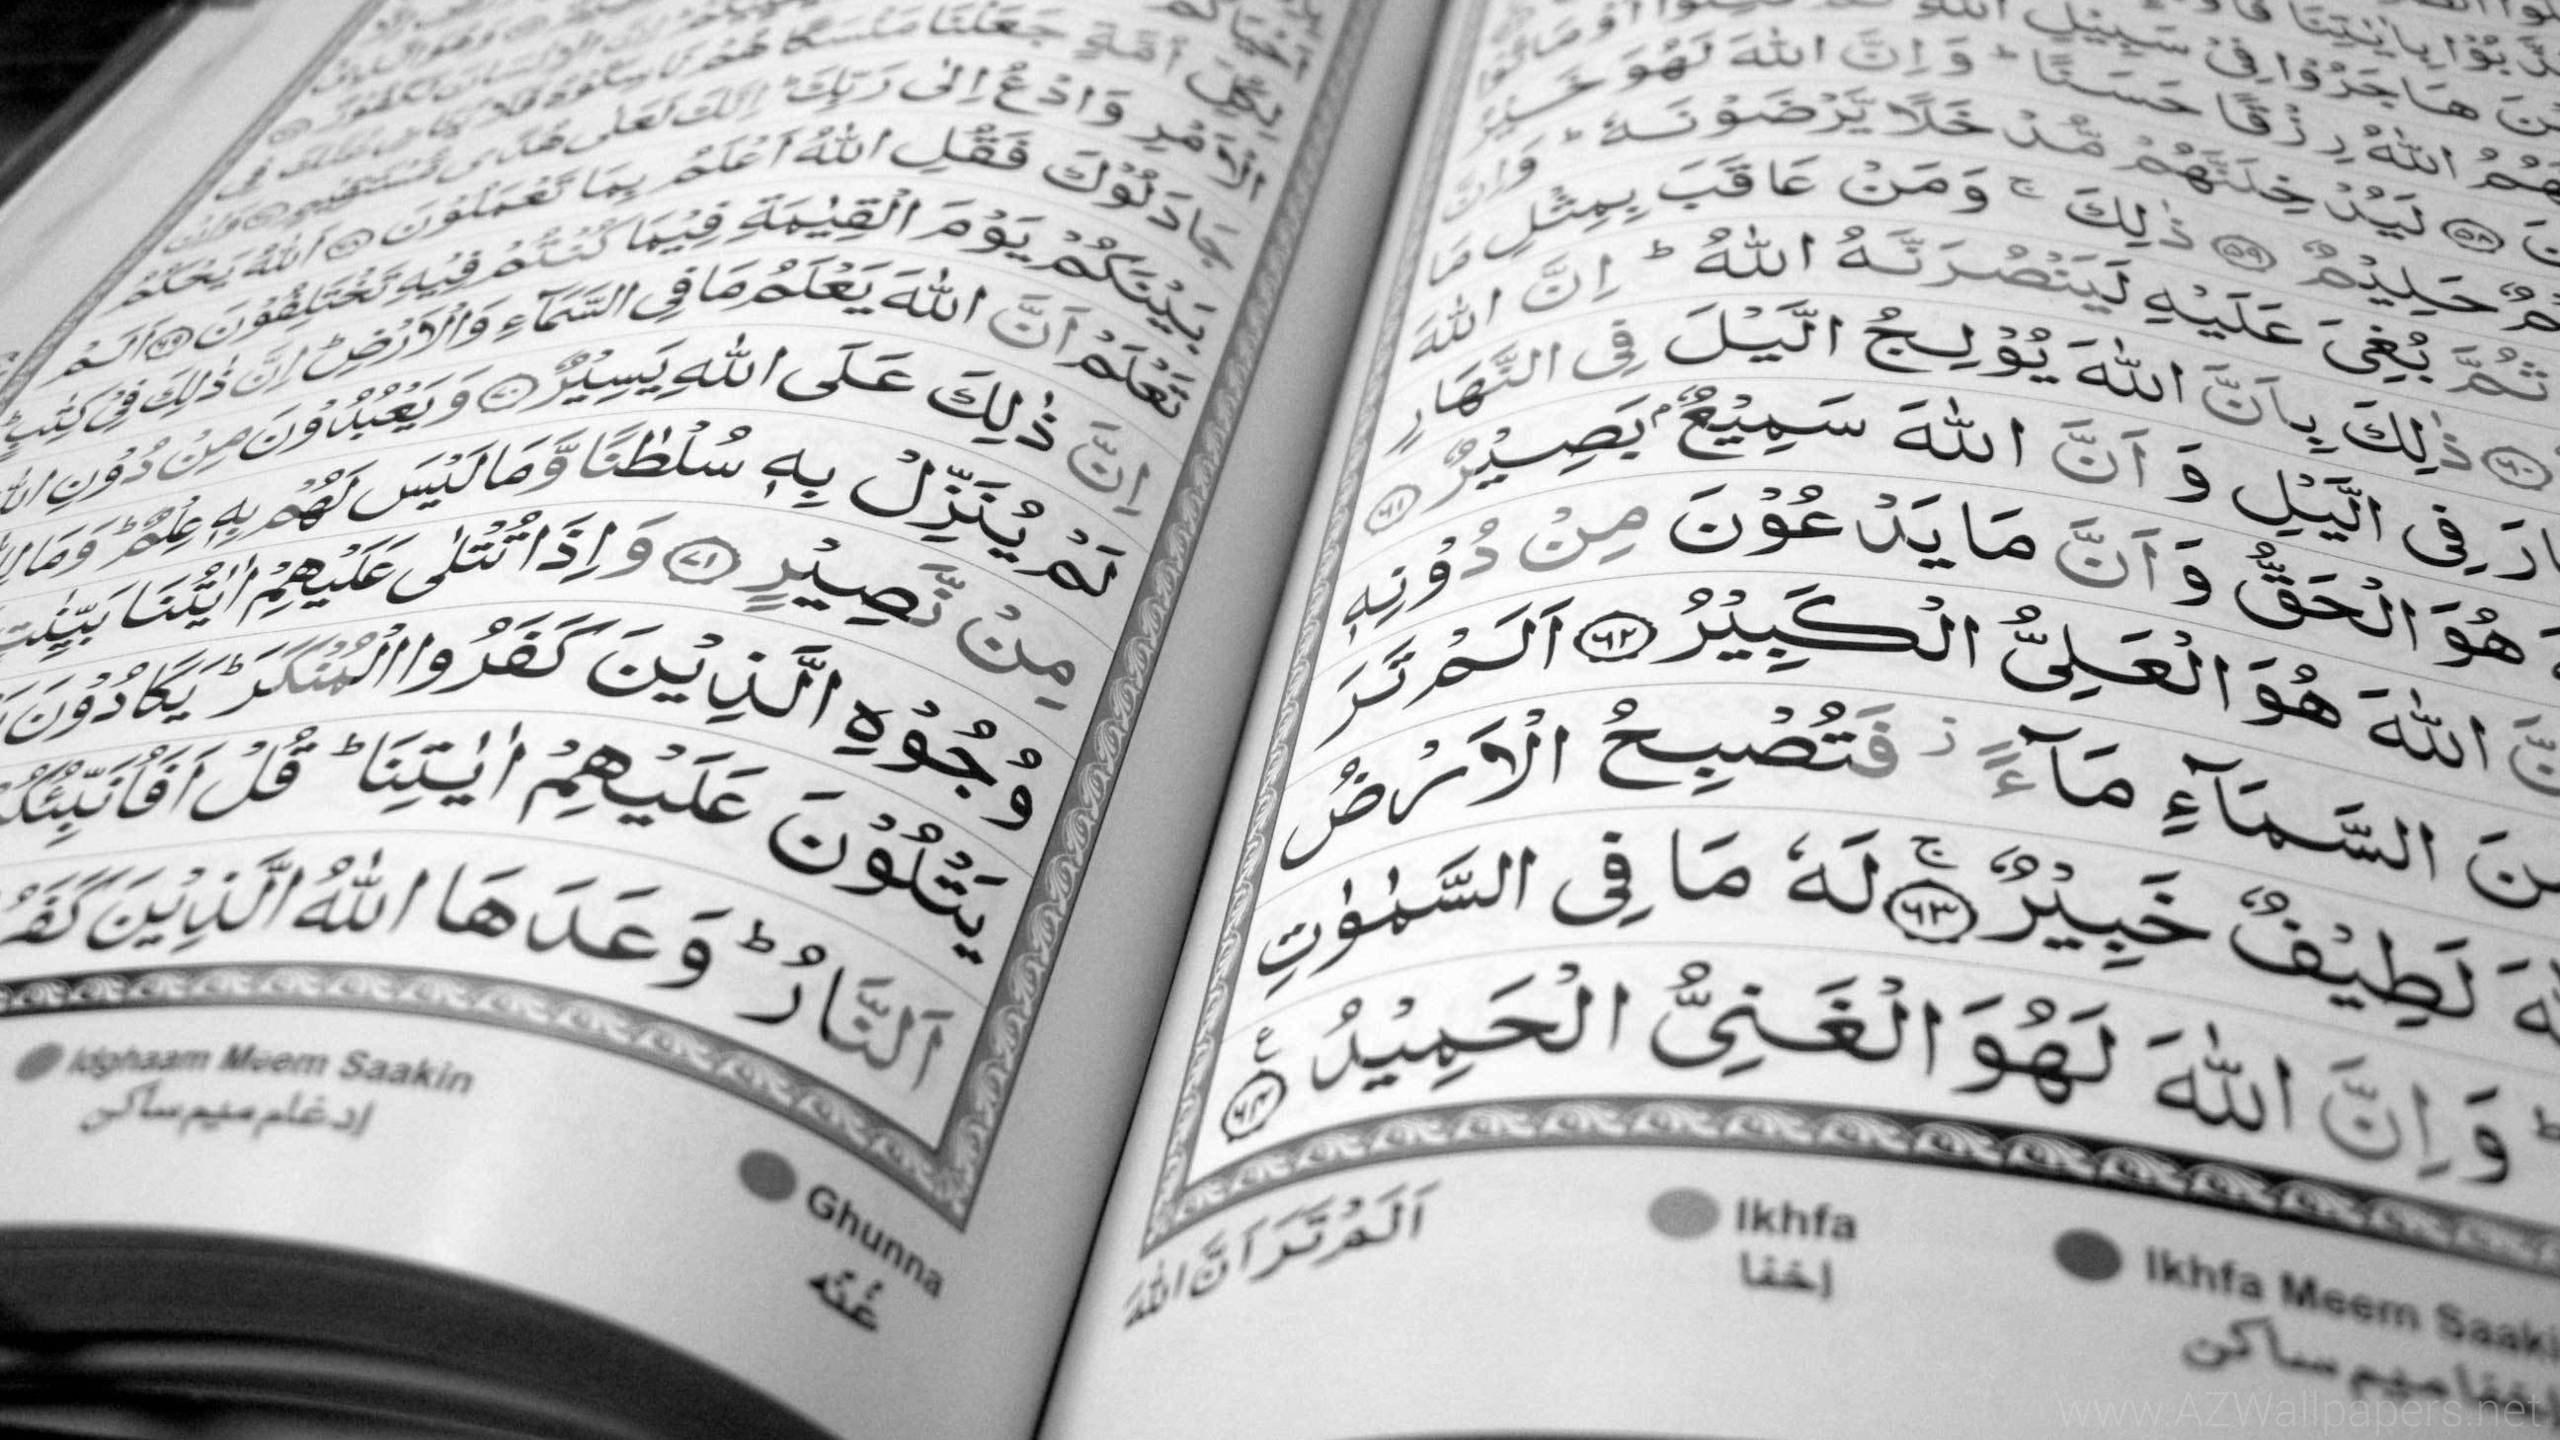 هَاجَرُوْا فِىْ سَبِيْلِ اللّٰهِ
اللّٰهُ رِزْقًا حَسَنًا ؕ وَاِنَّ اللّٰهَ لَهُوَ خَيْرُ
۵۸ لَيُدْخِلَنَّهُمْ مُّدْخَلًا يَّرْضَوْنَهٗ ؕ وَاِنَّ
حَلِيْمٌ ۵۹ ذٰلِكَ ۚ وَمَنْ عَاقَبَ بِمِثْلِ مَا
ثُمَّ بُغِىَ عَلَيْهِ لَيَنْصُرَنَّهُ اللّٰهُ ؕ اِنَّ اللّٰهَ
۶۰ ذٰلِكَ بِاَنَّ اللّٰهَ يُوْلِجُ الَّيْلَ فِى النَّهَارِ
فِى الَّيْلِ وَ اَنَّ اللّٰهَ سَمِيْعٌۢ بَصِيْرٌ ۶۱
هُوَ الْحَقُّ وَ اَنَّ مَا يَدْعُوْنَ مِنْ دُوْنِهٖ
اللّٰهَ هُوَ الْعَلِىُّ الْكَبِيْرُ ۶۲ اَلَمْ تَرَ
السَّمَآءِ مَآءً ز فَتُصْبِحُ الْاَرْضُ
لَطِيْفٌ خَبِيْرٌ ۚ ۶۳ لَهٗ مَا فِى السَّمٰوٰتِ
ؕ وَ اِنَّ اللّٰهَ لَهُوَ الْغَنِىُّ الْحَمِيْدُ ۶۴ ع
اَلَمْ تَرَ اَنَّ اللّٰهَ
Ikhfa
إخفا
Ikhfa Meem
ميم ساكن
لِكُلِّ اُمَّةٍ جَعَلْنَا مَنْسَكًا هُمْ نَاسِكُوْهُ فَلَا
الْاَمْرِ وَادْعُ اِلٰى رَبِّكَ ؕ اِنَّكَ لَعَلٰى هُدًى مُّسْتَقِيْمٍ
جَادَلُوْكَ فَقُلِ اللّٰهُ اَعْلَمُ بِمَا تَعْمَلُوْنَ ۶۸ اَللّٰهُ يَحْكُمُ
بَيْنَكُمْ يَوْمَ الْقِيٰمَةِ فِيْمَا كُنْتُمْ فِيْهِ تَخْتَلِفُوْنَ ۶۹ اَلَمْ
تَعْلَمْ اَنَّ اللّٰهَ يَعْلَمُ مَا فِى السَّمَآءِ وَالْاَرْضِ ؕ اِنَّ ذٰلِكَ فِىْ كِتٰبٍ
اِنَّ ذٰلِكَ عَلَى اللّٰهِ يَسِيْرٌ ۷۰ وَ يَعْبُدُوْنَ مِنْ دُوْنِ
لَمْ يُنَزِّلْ بِهٖ سُلْطٰنًا وَّ مَا لَيْسَ لَهُمْ بِهٖ عِلْمٌ ؕ وَمَا
مِنْ نَّصِيْرٍ ۷۱ وَ اِذَا تُتْلٰى عَلَيْهِمْ اٰيٰتُنَا بَيِّنٰتٍ
وُجُوْهِ الَّذِيْنَ كَفَرُوا الْمُنْكَرَ ؕ يَكَادُوْنَ
يَتْلُوْنَ عَلَيْهِمْ اٰيٰتِنَا ؕ قُلْ اَفَاُنَبِّئُكُمْ
اَلنَّارُ ؕ وَعَدَهَا اللّٰهُ الَّذِيْنَ
Idghaam Meem Saakin
إدغام ميم ساكن
Ghunna
غُنّه
www.AZWallpapers.net